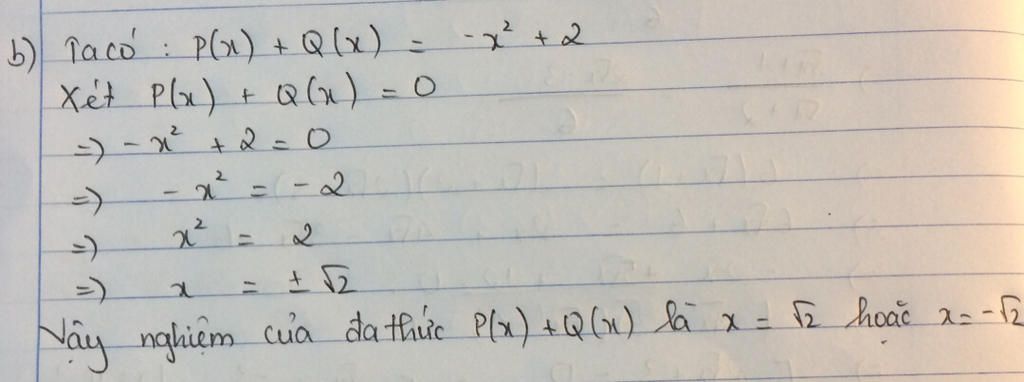 b) Ta có : P(x) + Q(x) = -x² + 2
Xét P(x) + Q(x) = 0
=) - x² + 2 = 0
=) - x² = - 2
=) x² = 2
=) x = ± √2
Vậy nghiệm của đa thức P(x) + Q(x) là x = √2 hoặc x = -√2